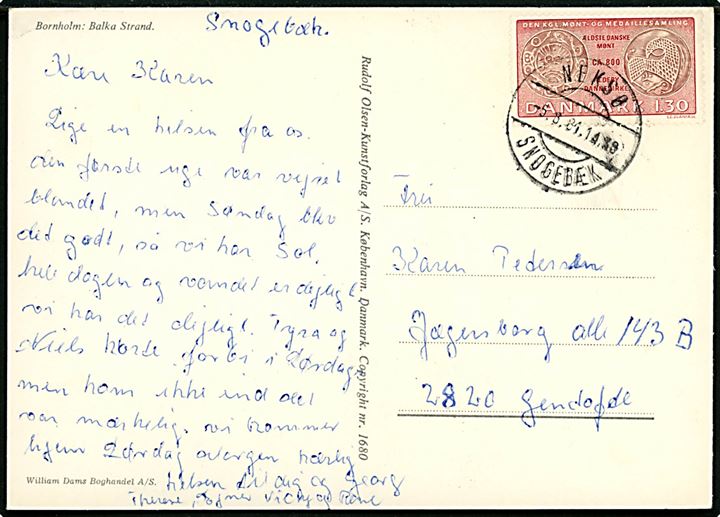 Bornholm: Balka Strand.
Snogebæk.
Kære Karen
Lige en hilsen fra os.
den første uge var vejret
blandet, men Søndag blev
det godt, så vi har Sol.
hele dagen og vandet er dejligt
vi har det dejligt. Tyra og
Niels kørte forbi i Lørdag
men kom ikke ind det
var mærkelig. vi kommer
hjem Lørdag morgen kærlig
hilsen til dig og Georg
Therese,
William Dams Boghandel A/S.
Rudolf Olsen-Kunstforlag A/S. København. Danmark. Copyright nr. 1680
DEN KGL. MØNT- OG MEDAILLESAMLING
ÆLDSTE DANSKE
MØNT
CA. 800
HEDEBY
DANNEVIRKE
DANMARK 1.30
NEKSØ
SNOGEBÆK
Frú
Karen Pedersen
Jægersborg alle 143 B
2820 Gendofte